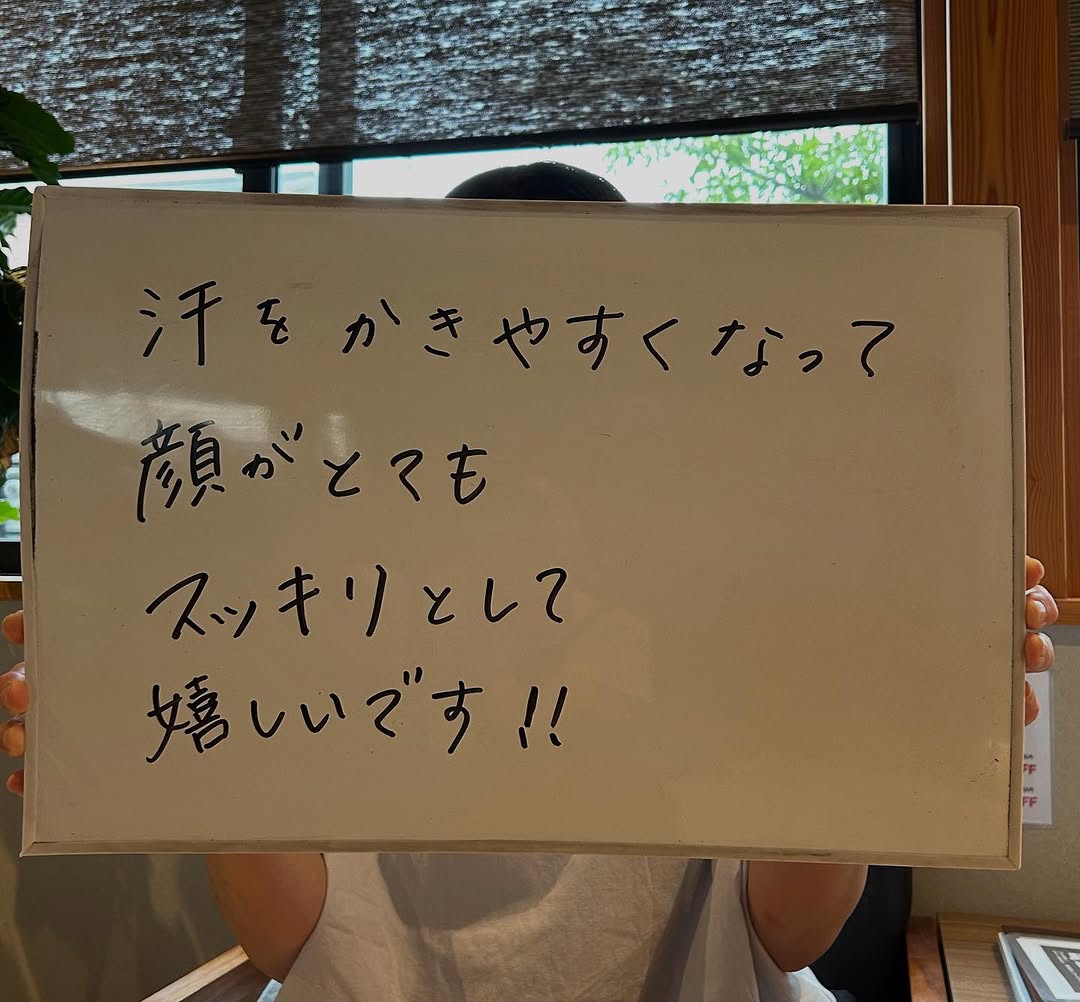 汗をかきやすくなって
顔がとても
スッキリとして
嬉しいです!!
FF
FF